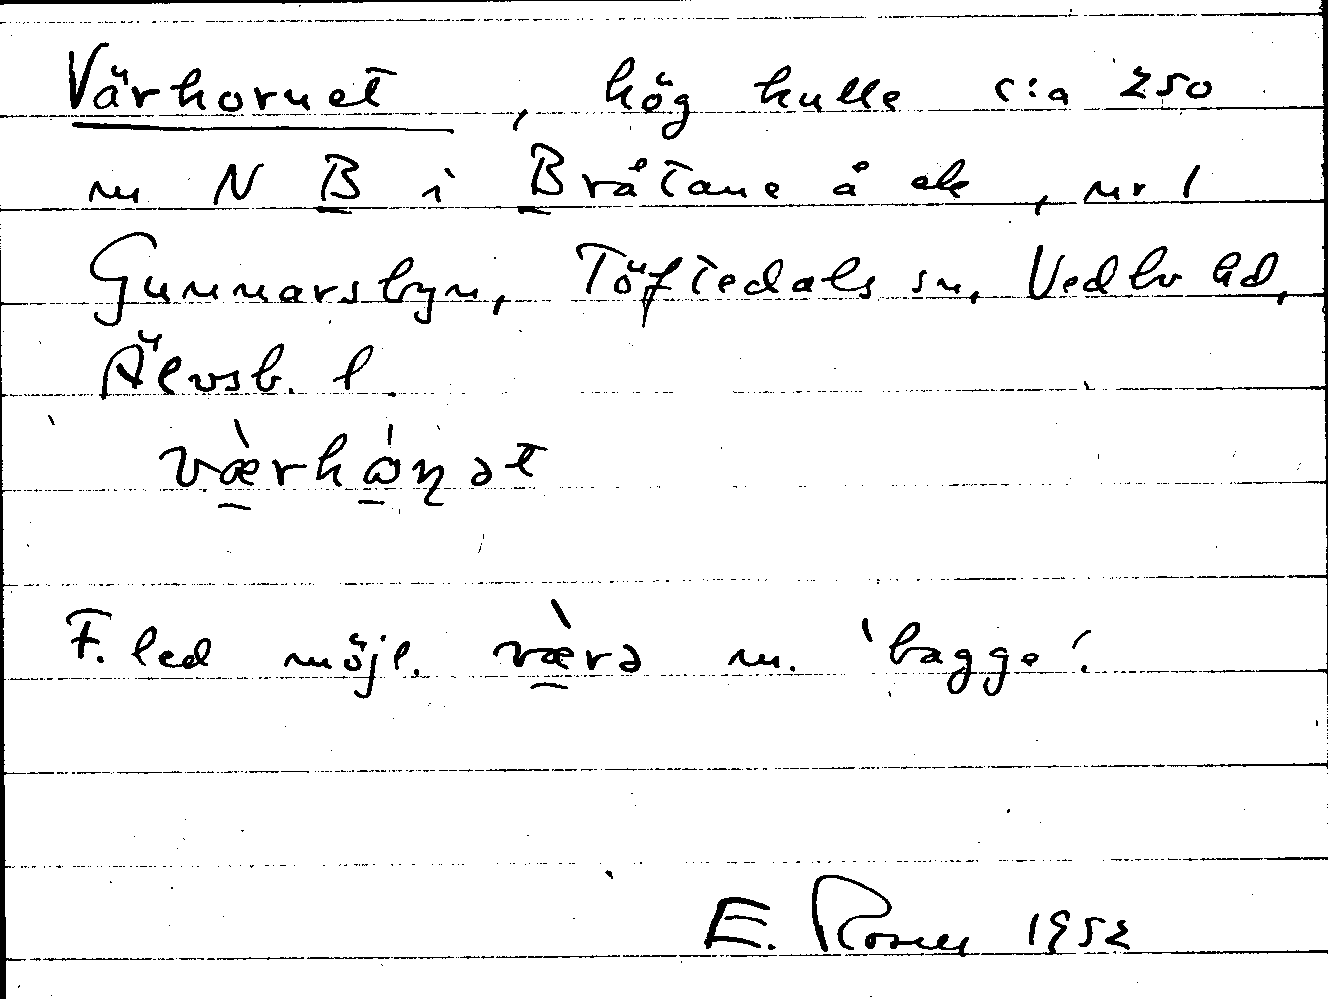 Värhornet, hög kulle c:a 250
m N B i Bråtane å ek, nr 1
Gunnarsbyn, Töftedals sn, Vedbo hd,
Älvsb. l.
værhɔɳət
F. led möjl. værə m. 'bagge'.
E. Rosell 1952